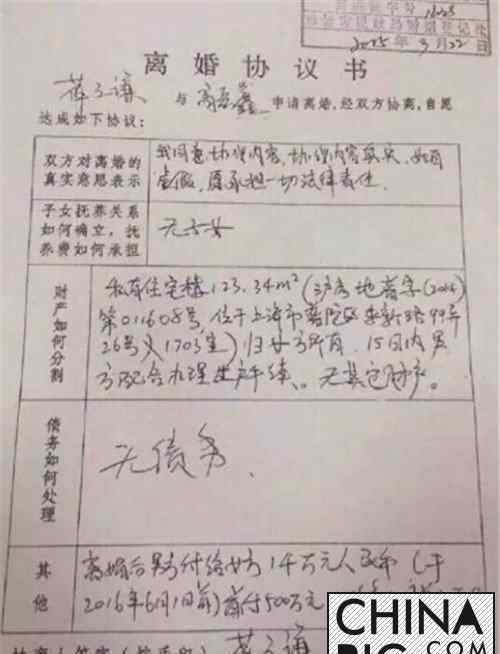 2015年3月22日
离婚协议书
与 申请离婚,经双方协商,自愿
达成如下协议:
双方对离婚的
真实意思表示
我同意协议内容,协议内容真实,如有
虚假,愿承担一切法律责任.
子女抚养关系
如何确立,抚
养费如何承担
无子女
财产如何分割
私有住宅楼123.34m²(沪房地普字(
第011608号,位于上海市普陀区 99弄
26号 1703室)归女方所有,15日内男
方配合办理过户手续、无其它财产。
债务如何处理
无债务.
其他
离婚后男方付给女方1千万元人民币(于
2016年6月1日前)首付500万元
CHINA